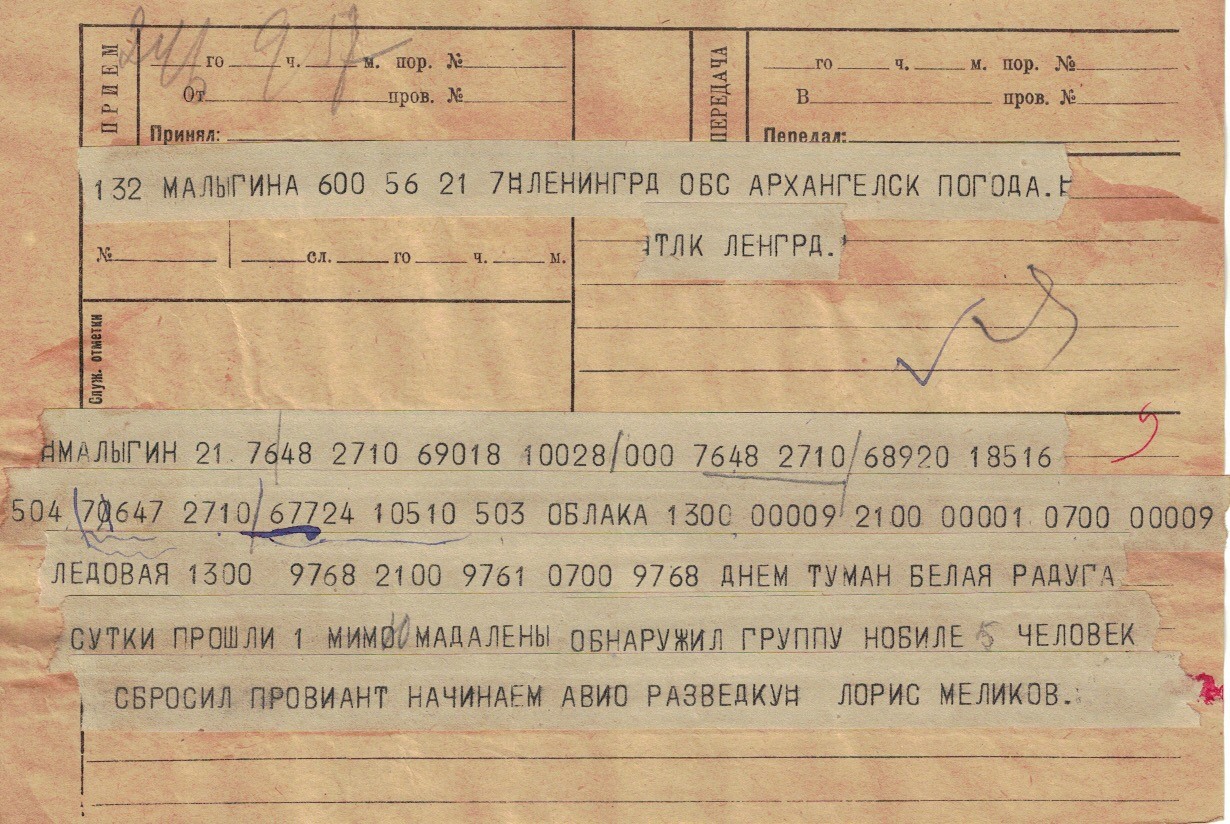 ПРИЕМ
го ч. м. пор. №
От пров. №
Принял:
ПЕРЕДАЧА
го ч. м. пор. №
В пров. №
Передал:
132 МАЛЫГИНА 600 56 21 7Н ЛЕНИНГРД ОБС АРХАНГЕЛСК ПОГОДА.
ТЛК ЛЕНГРД.
№ сл. го ч. м.
Служ. отметки
МАЛЫГИН 21 7648 2710 69018 10028/000 7648 2710/68920 18516
504 2710/67724 10510 503 ОБЛАКА 1300 00009 2100 00001 0700 00009
ЛЕДОВАЯ 1300 9768 2100 9761 0700 9768 ДНЕМ ТУМАН БЕЛАЯ РАДУГА
СУТКИ ПРОШЛИ 1 МИМО МАДАЛЕНЫ ОБНАРУЖИЛ ГРУППУ НОБИЛЕ 5 ЧЕЛОВЕК
СБРОСИЛ ПРОВИАНТ НАЧИНАЕМ АВИО РАЗВЕДКУН ЛОРИС МЕЛИКОВ.